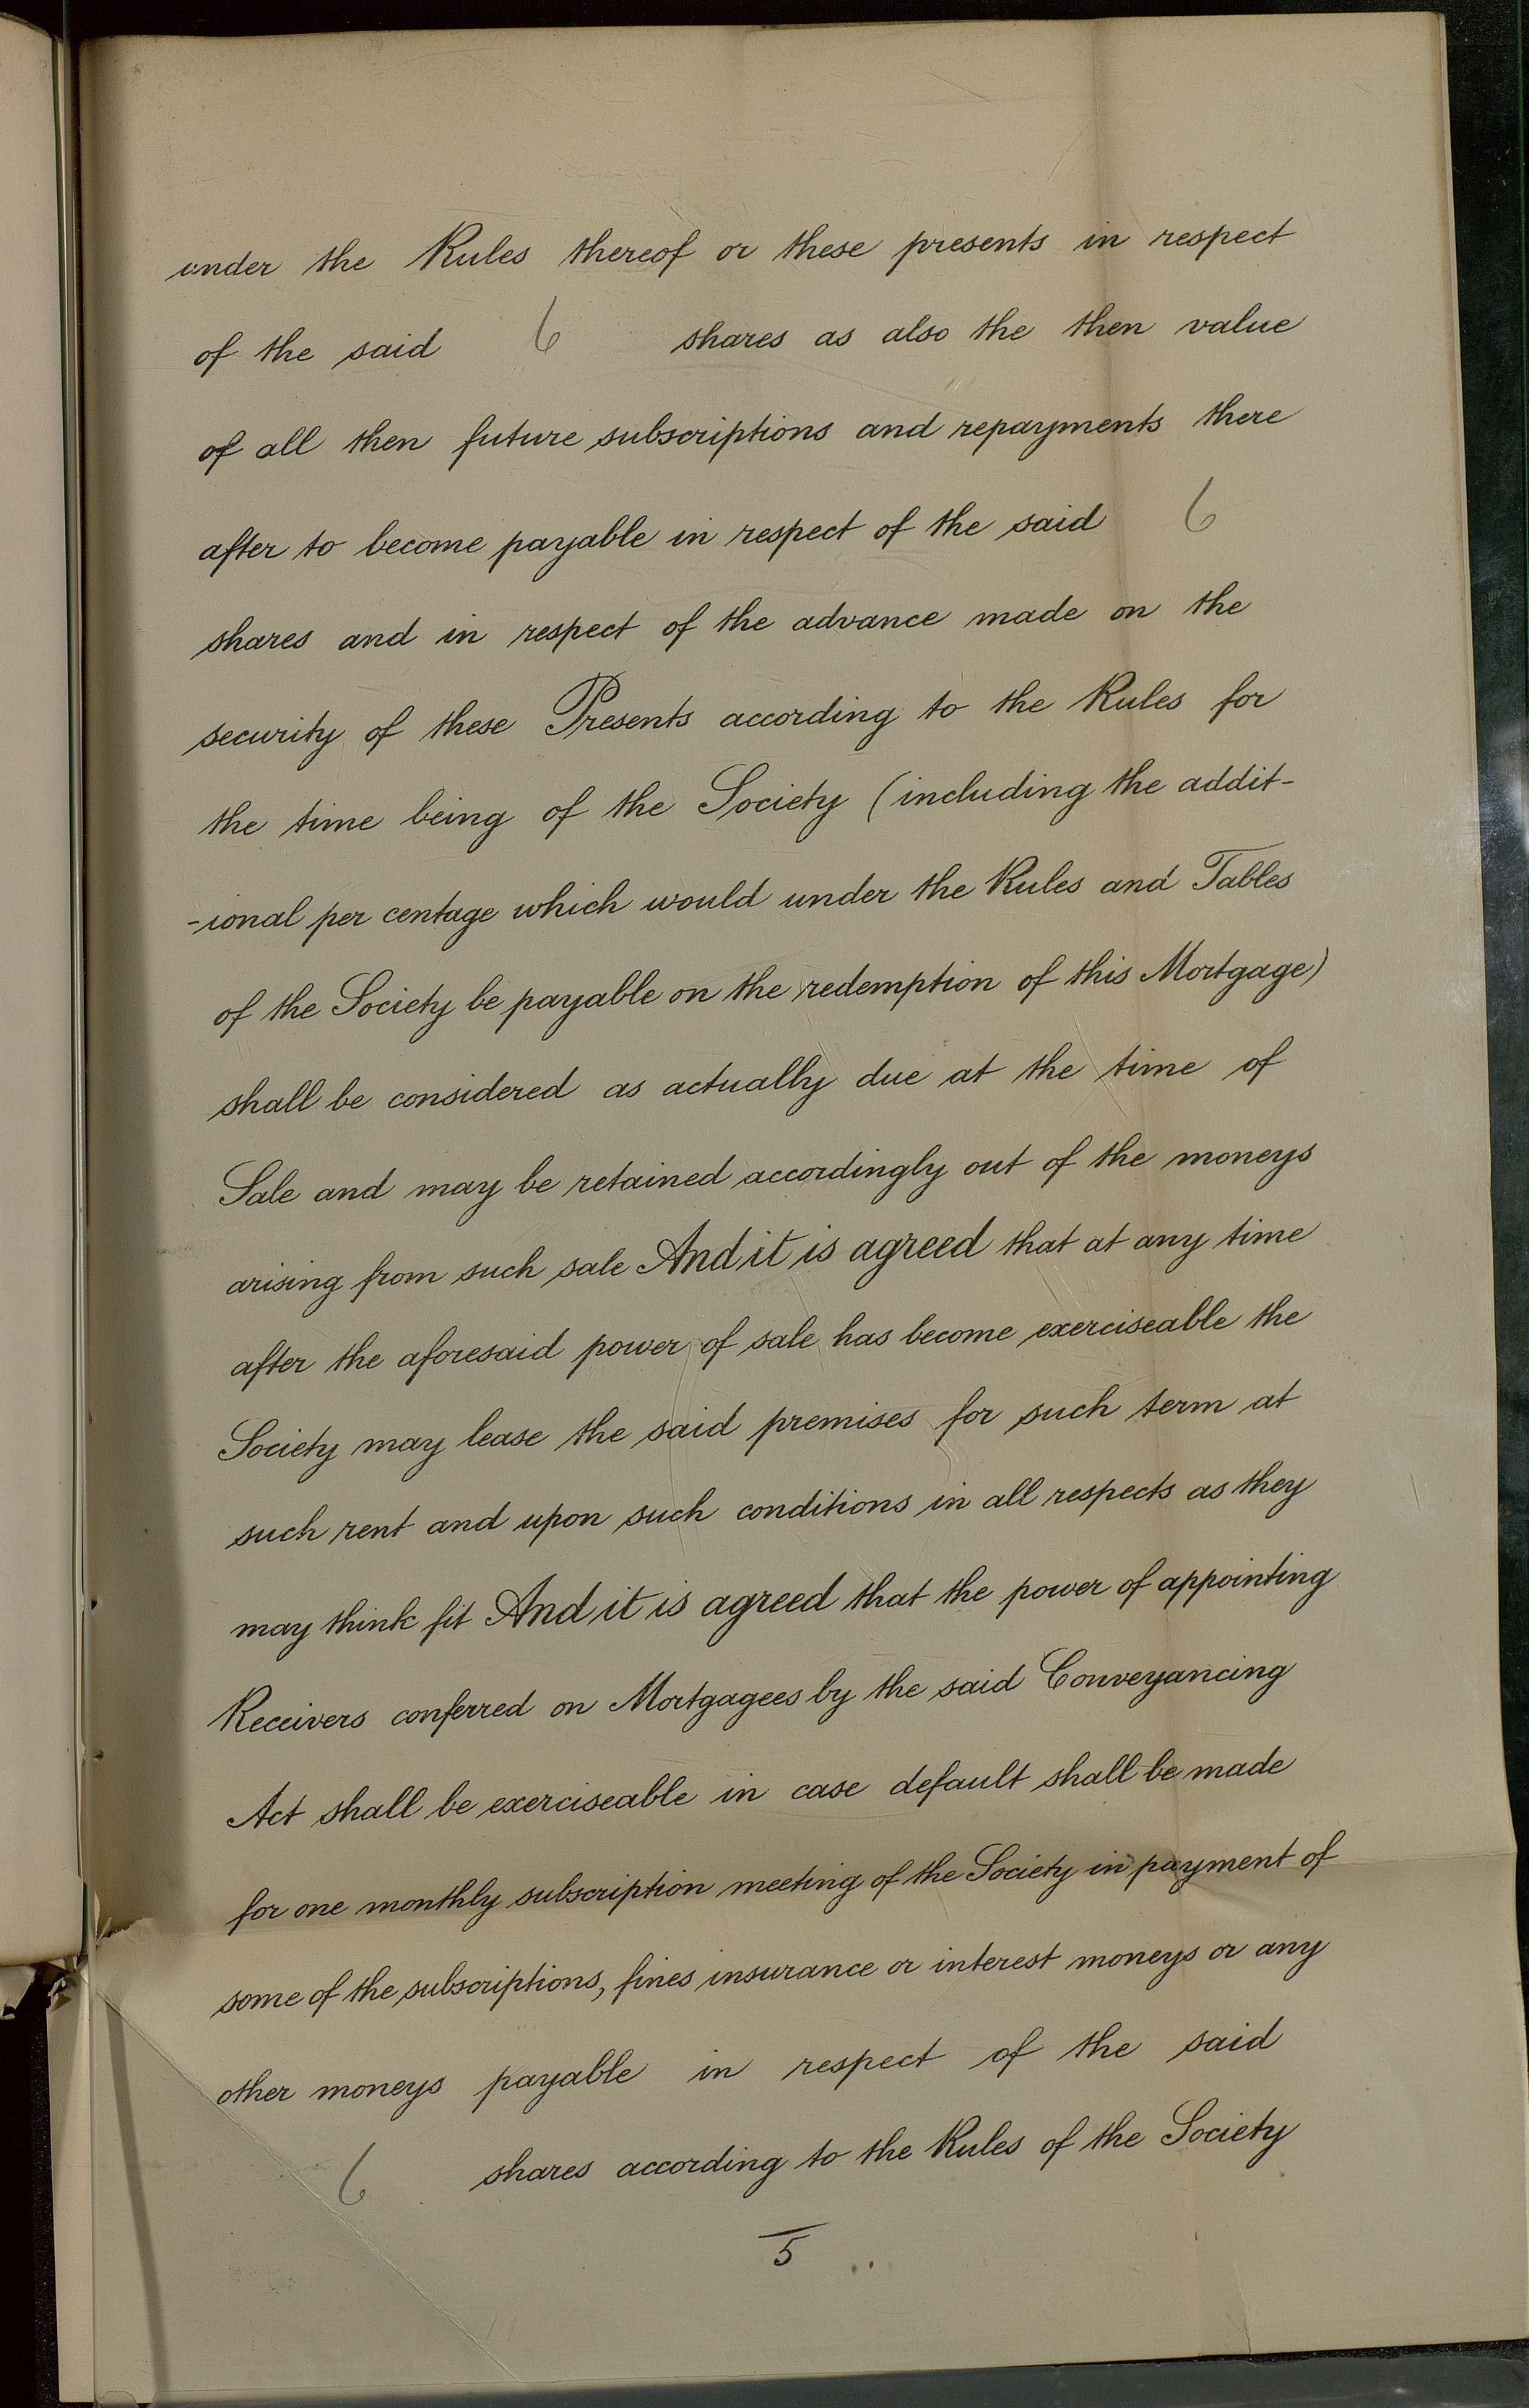 under the Rules thereof or these presents in respect
of the said 6 shares as also the then value
of all then future subscriptions and repayments there
after to become payable in respect of the said 6
shares and in respect of the advance made on the
security of these Presents according to the Rules for
the time being of the Society (including the addit-
-ional per centage which would under the Rules and Tables
of the Society be payable on the redemption of this Mortgage)
shall be considered as actually due at the time of
Sale and may be retained accordingly out of the moneys
arising from such sale And it is agreed that at any time
after the aforesaid power of sale has become exerciseable the
Society may lease the said premises for such term at
such rent and upon such conditions in all respects as they
may think fit And it is agreed that the power of appointing
Receivers conferred on Mortgagees by the said Conveyancing
Act shall be exerciseable in case default shall be made
for one monthly subscription meeting of the Society in payment of
some of the subscriptions, fines insurance or interest moneys or any
other moneys payable in respect of the said
6 shares according to the Rules of the Society
5